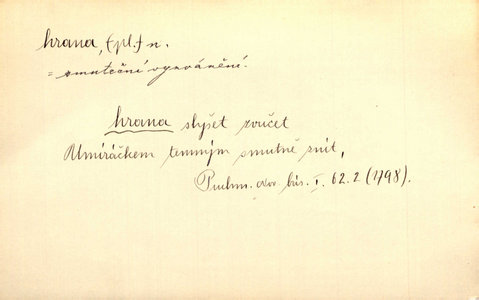 hrana, (pl.) n.
= smuteční vyzvánění.
hrana slyšet zvučet
Umíráčkem temným smutně znít,
Puchm. bás. I. 62. 2 (1798).